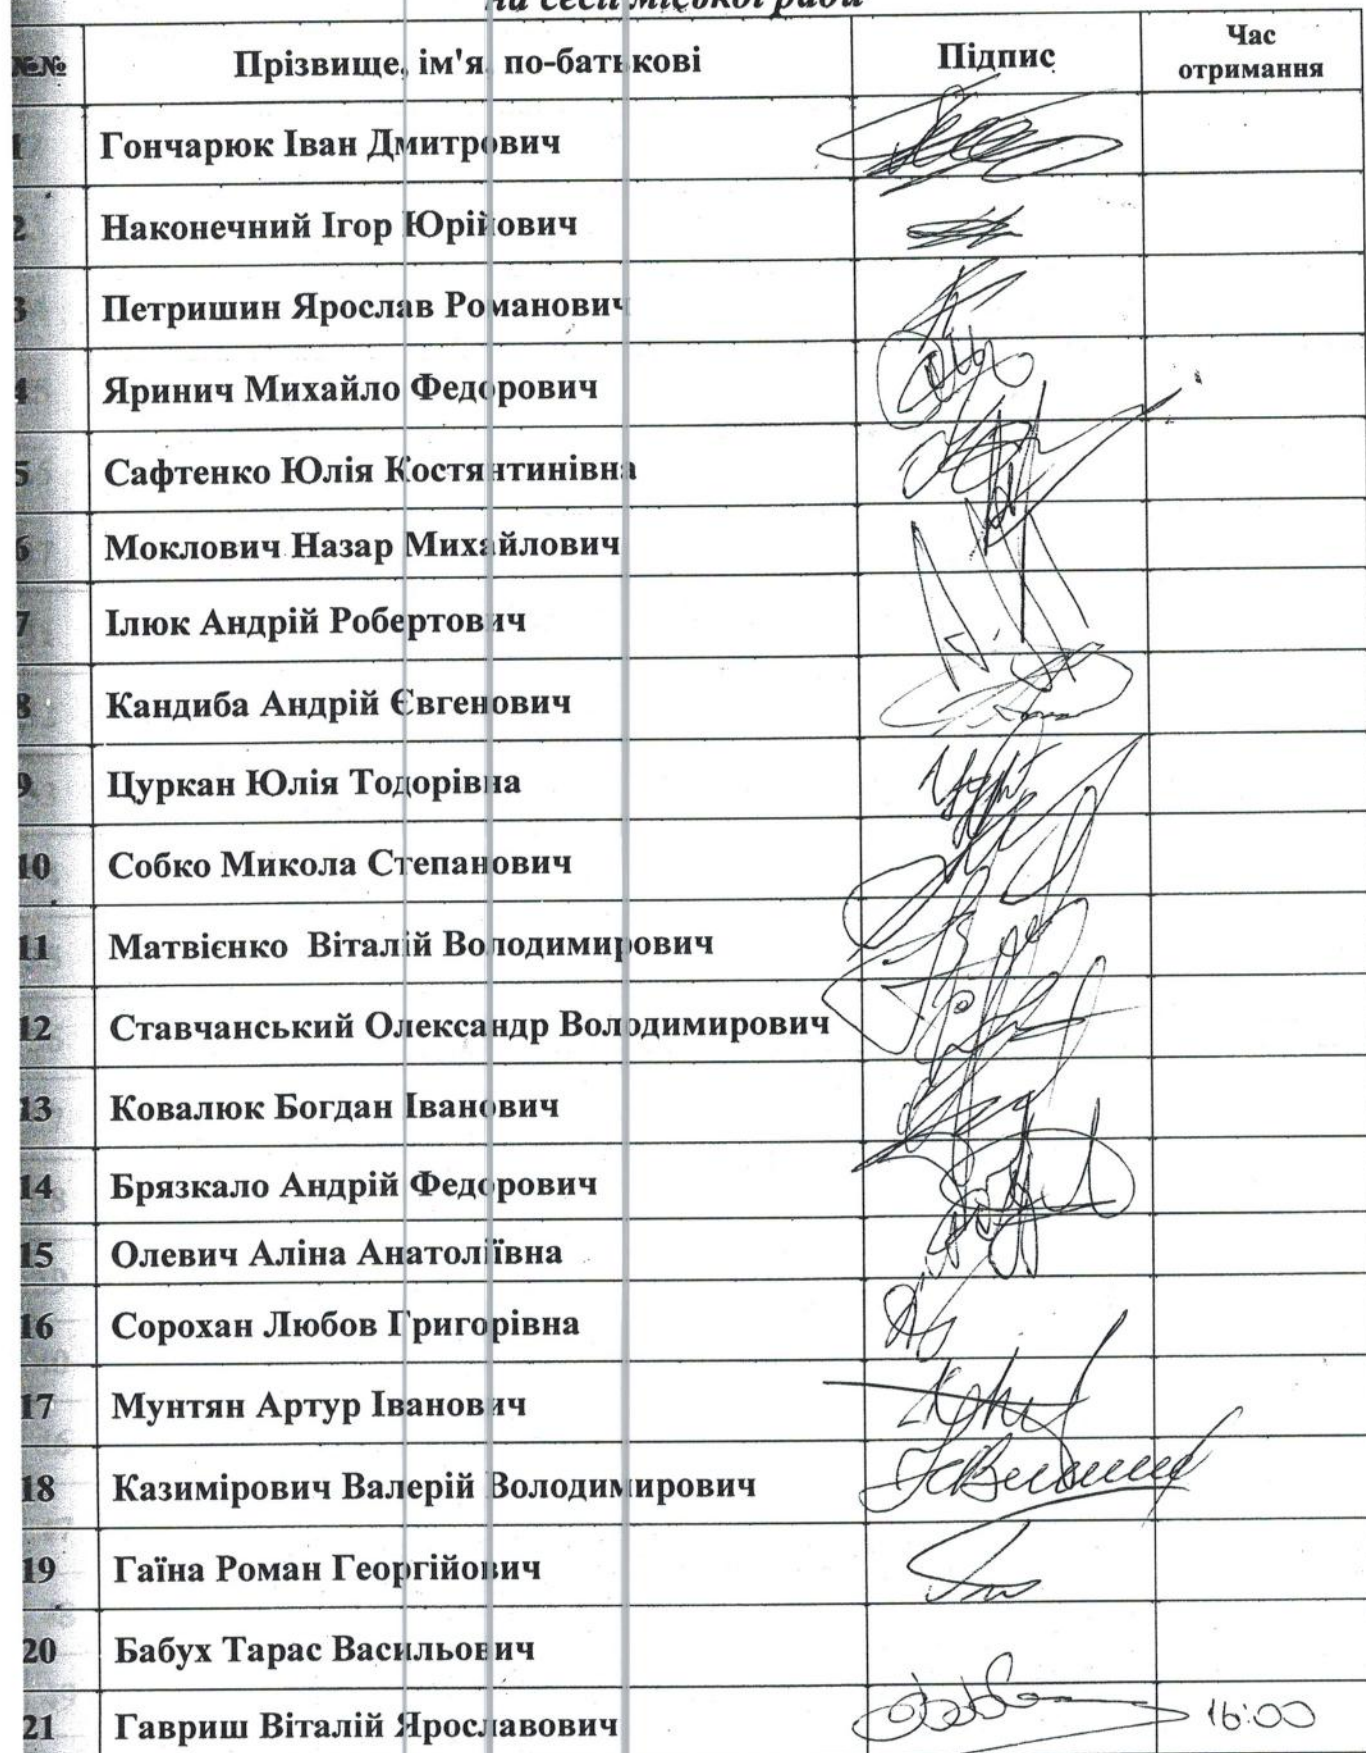 на сесії міської ради
№№ Прізвище, ім'я, по-батькові Підпис Час отримання
1 Гончарюк Іван Дмитрович
2 Наконечний Ігор Юрійович
3 Петришин Ярослав Романович
4 Яринич Михайло Федорович
5 Сафтенко Юлія Костянтинівна
6 Моклович Назар Михайлович
7 Ілюк Андрій Робертович
8 Кандиба Андрій Євгенович
9 Цуркан Юлія Тодорівна
10 Собко Микола Степанович
11 Матвієнко Віталій Володимирович
12 Ставчанський Олександр Володимирович
13 Ковалюк Богдан Іванович
14 Брязкало Андрій Федорович
15 Олевич Аліна Анатоліївна
16 Сорохан Любов Григорівна
17 Мунтян Артур Іванович
18 Казимірович Валерій Володимирович
19 Гаїна Роман Георгійович
20 Бабух Тарас Васильович
21 Гавриш Віталій Ярославович 16:00